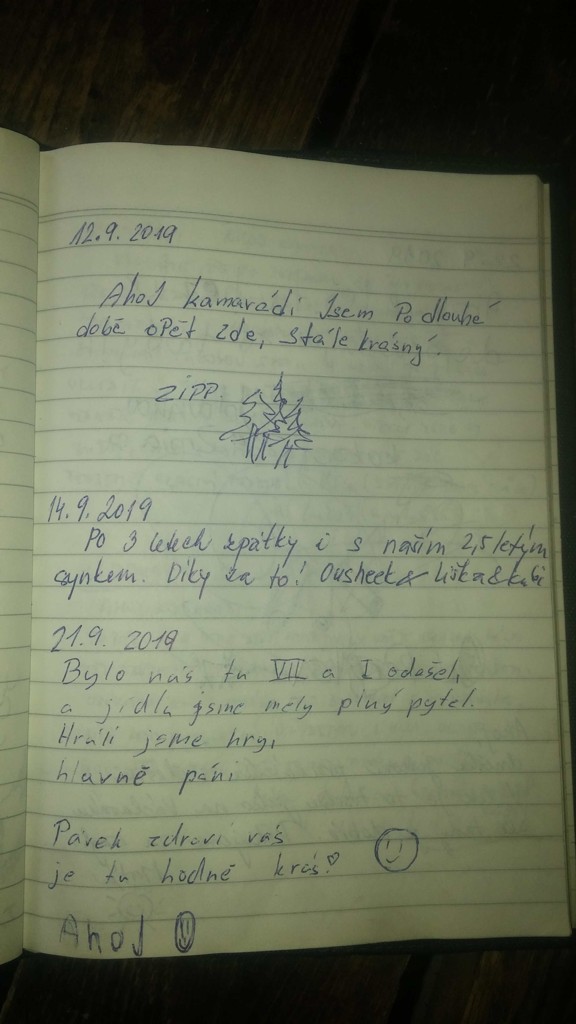 12.9. 2019
Ahoj kamarádi Jsem Po dlouhé
době oPět zde, stále krásný.
ZIPP.
14.9. 2019
Po 3 letech zpátky i s naším 2,5 letým
synkem. Díky za to! Ousheek & Liška & Kubi
21.9. 2019
Bylo nás tu VII a I odešel,
a jídla jsme měly plný pytel.
Hráli jsme hry,
hlavně páni
Pavek zdraví vás
je tu hodně krás!
Ahoj